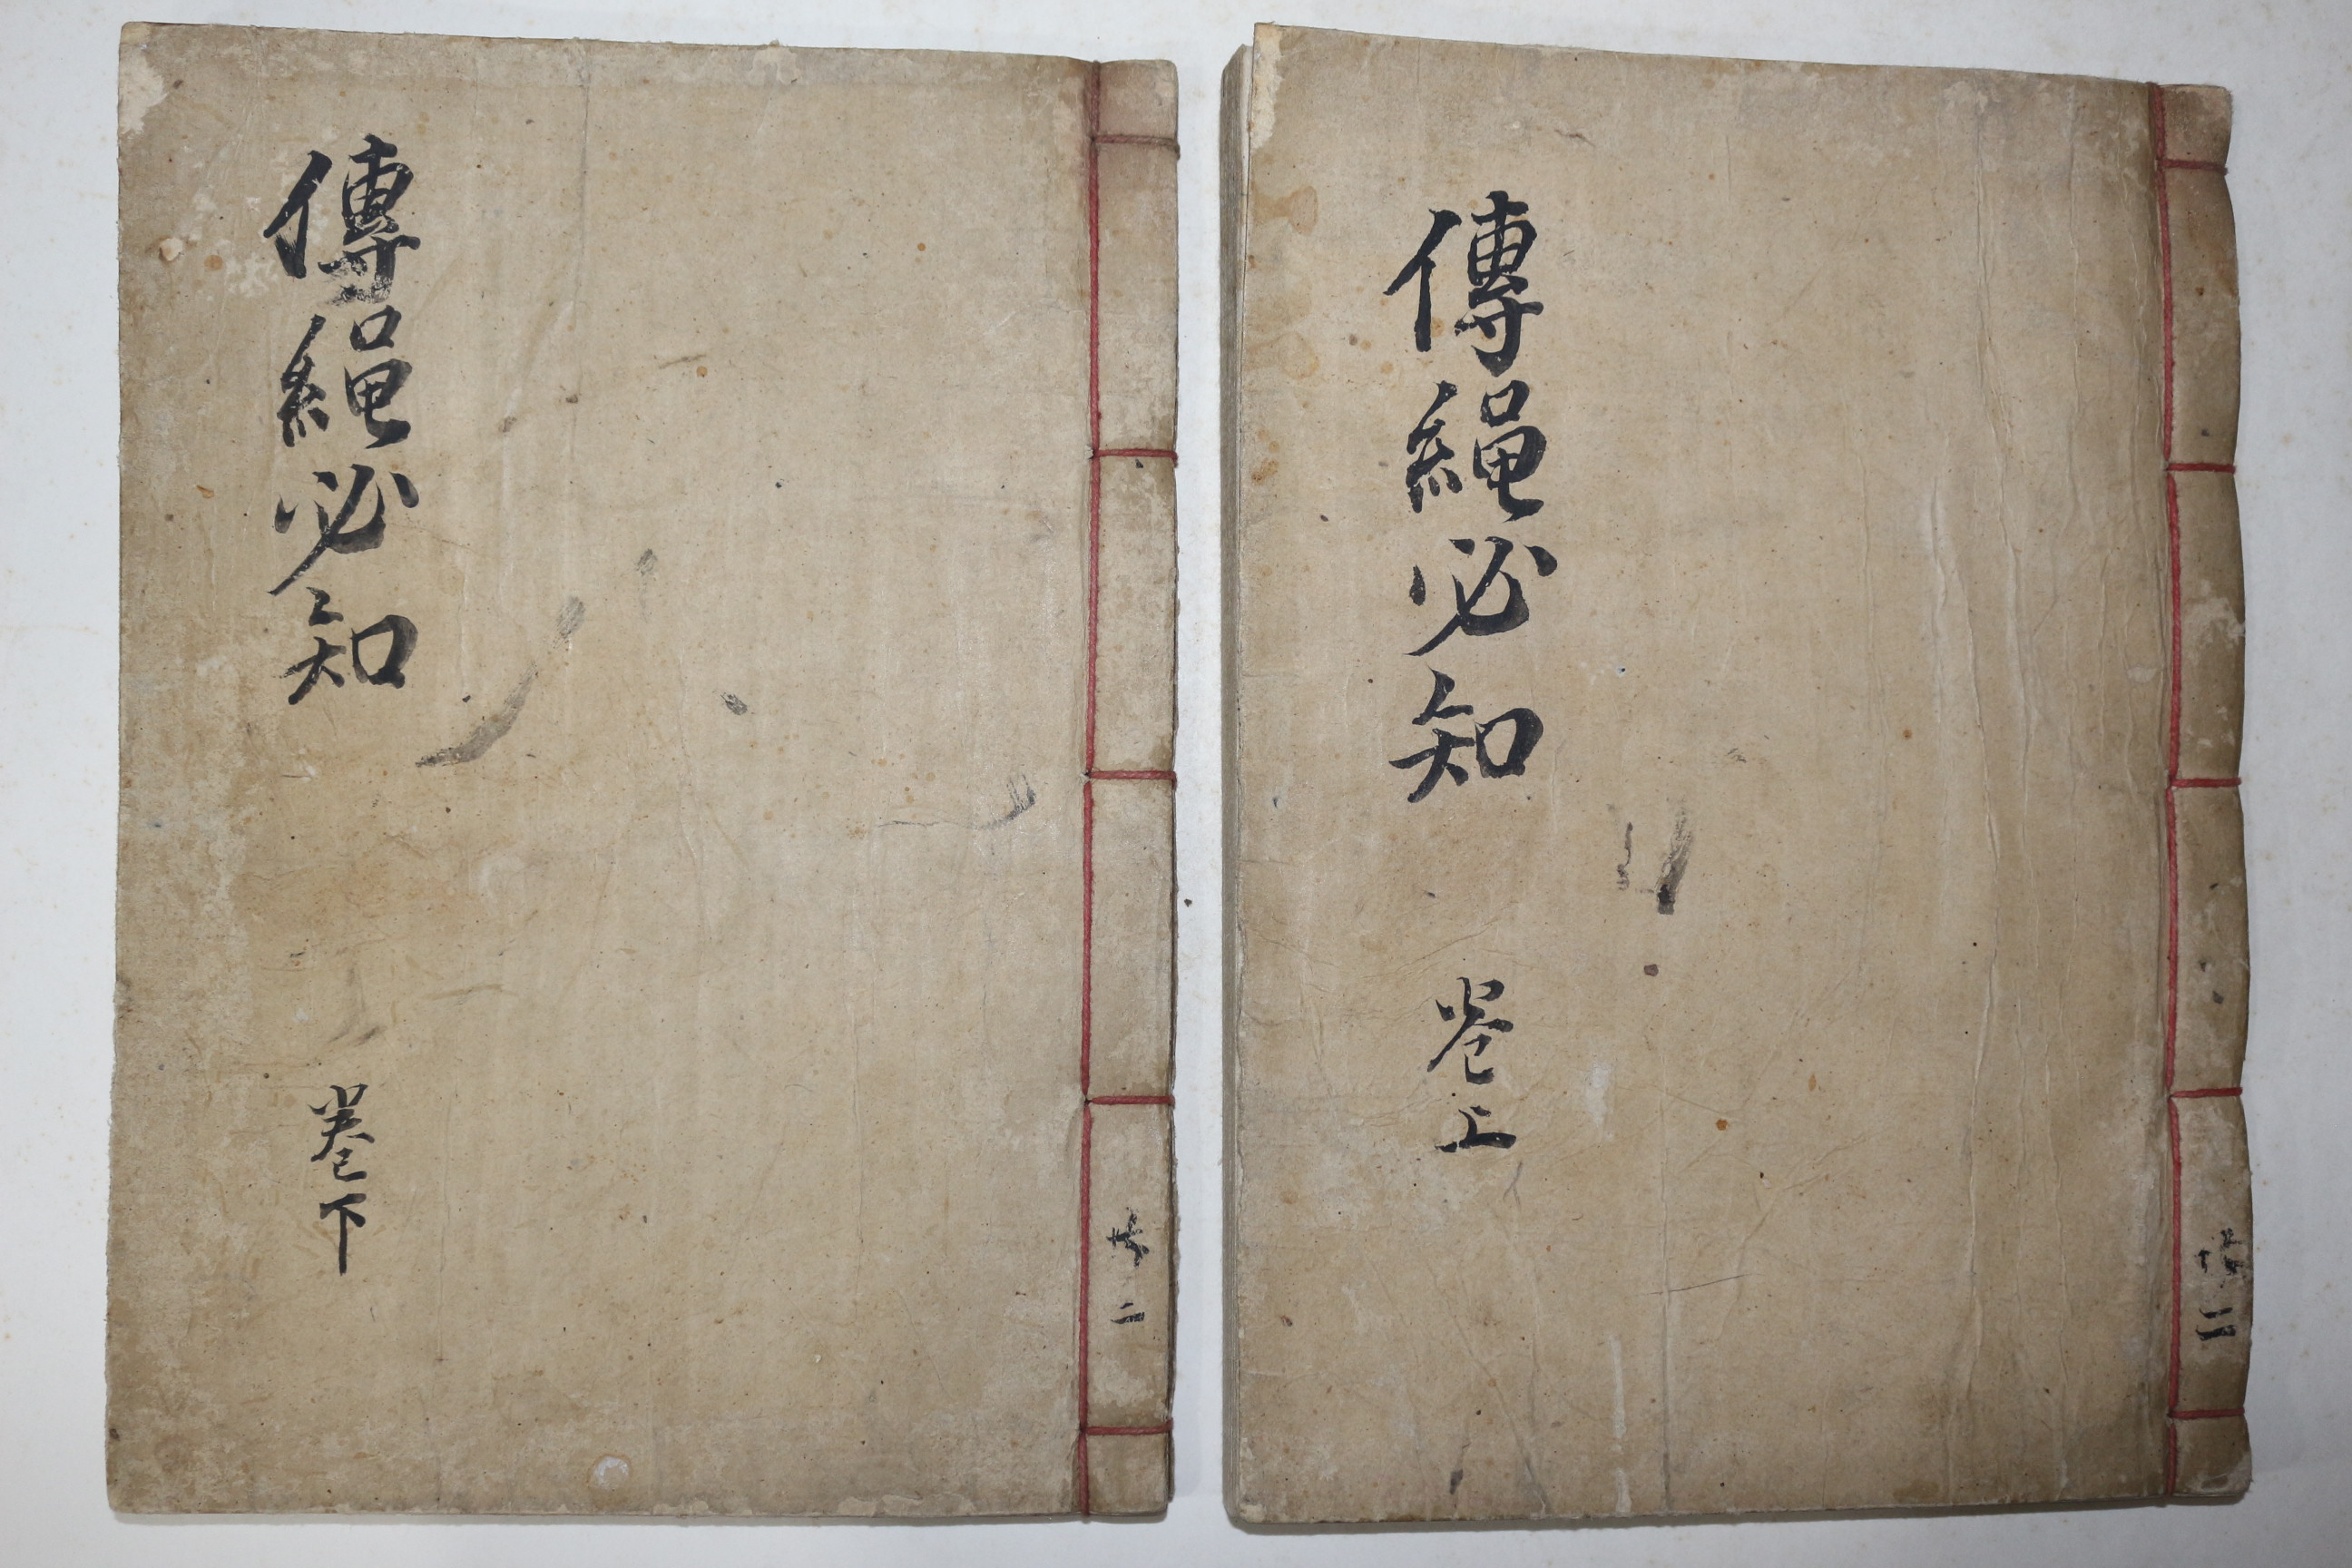 傳繩必知
卷上
二
傳繩必知
卷下
二